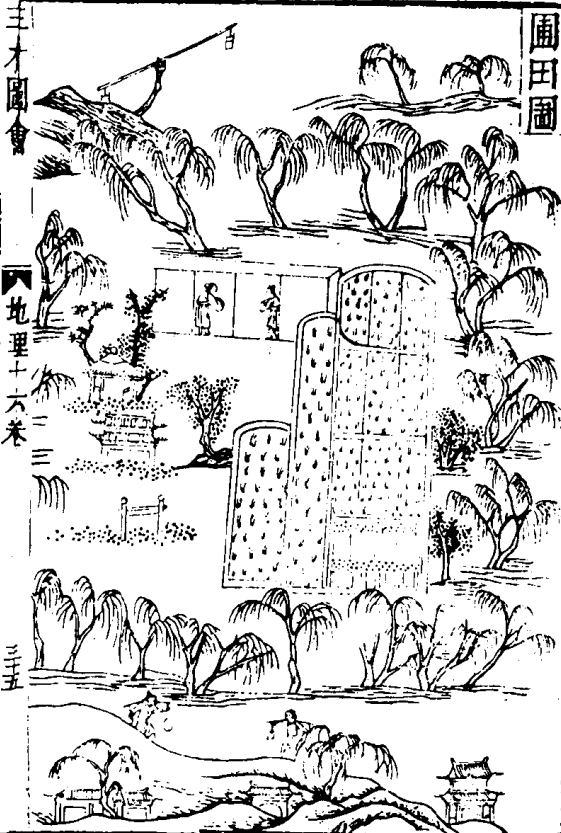 圃田圖
三才圖會
地理十六卷
三十五